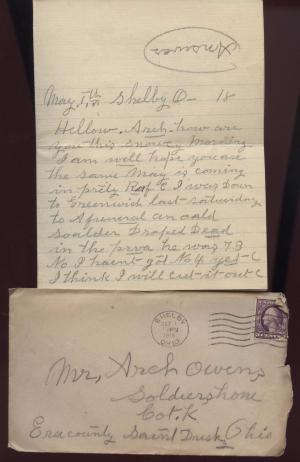 Answer
May, 1th Shelby O- 18
Hellow. Arch. how are
you this snowey Morning
I am well hope you are
the same May is coming
in prety I was Down
to Greenwich last saturday
to a funeral an oald
soulder Droped Dead
in the he was 73
No I haint got No 4 yet
I think I will cut it out
SHELBY
OHIO
Mr, Arch Owens
Soldiershome
Cot. K
Eracounty Saint Dusky Ohio